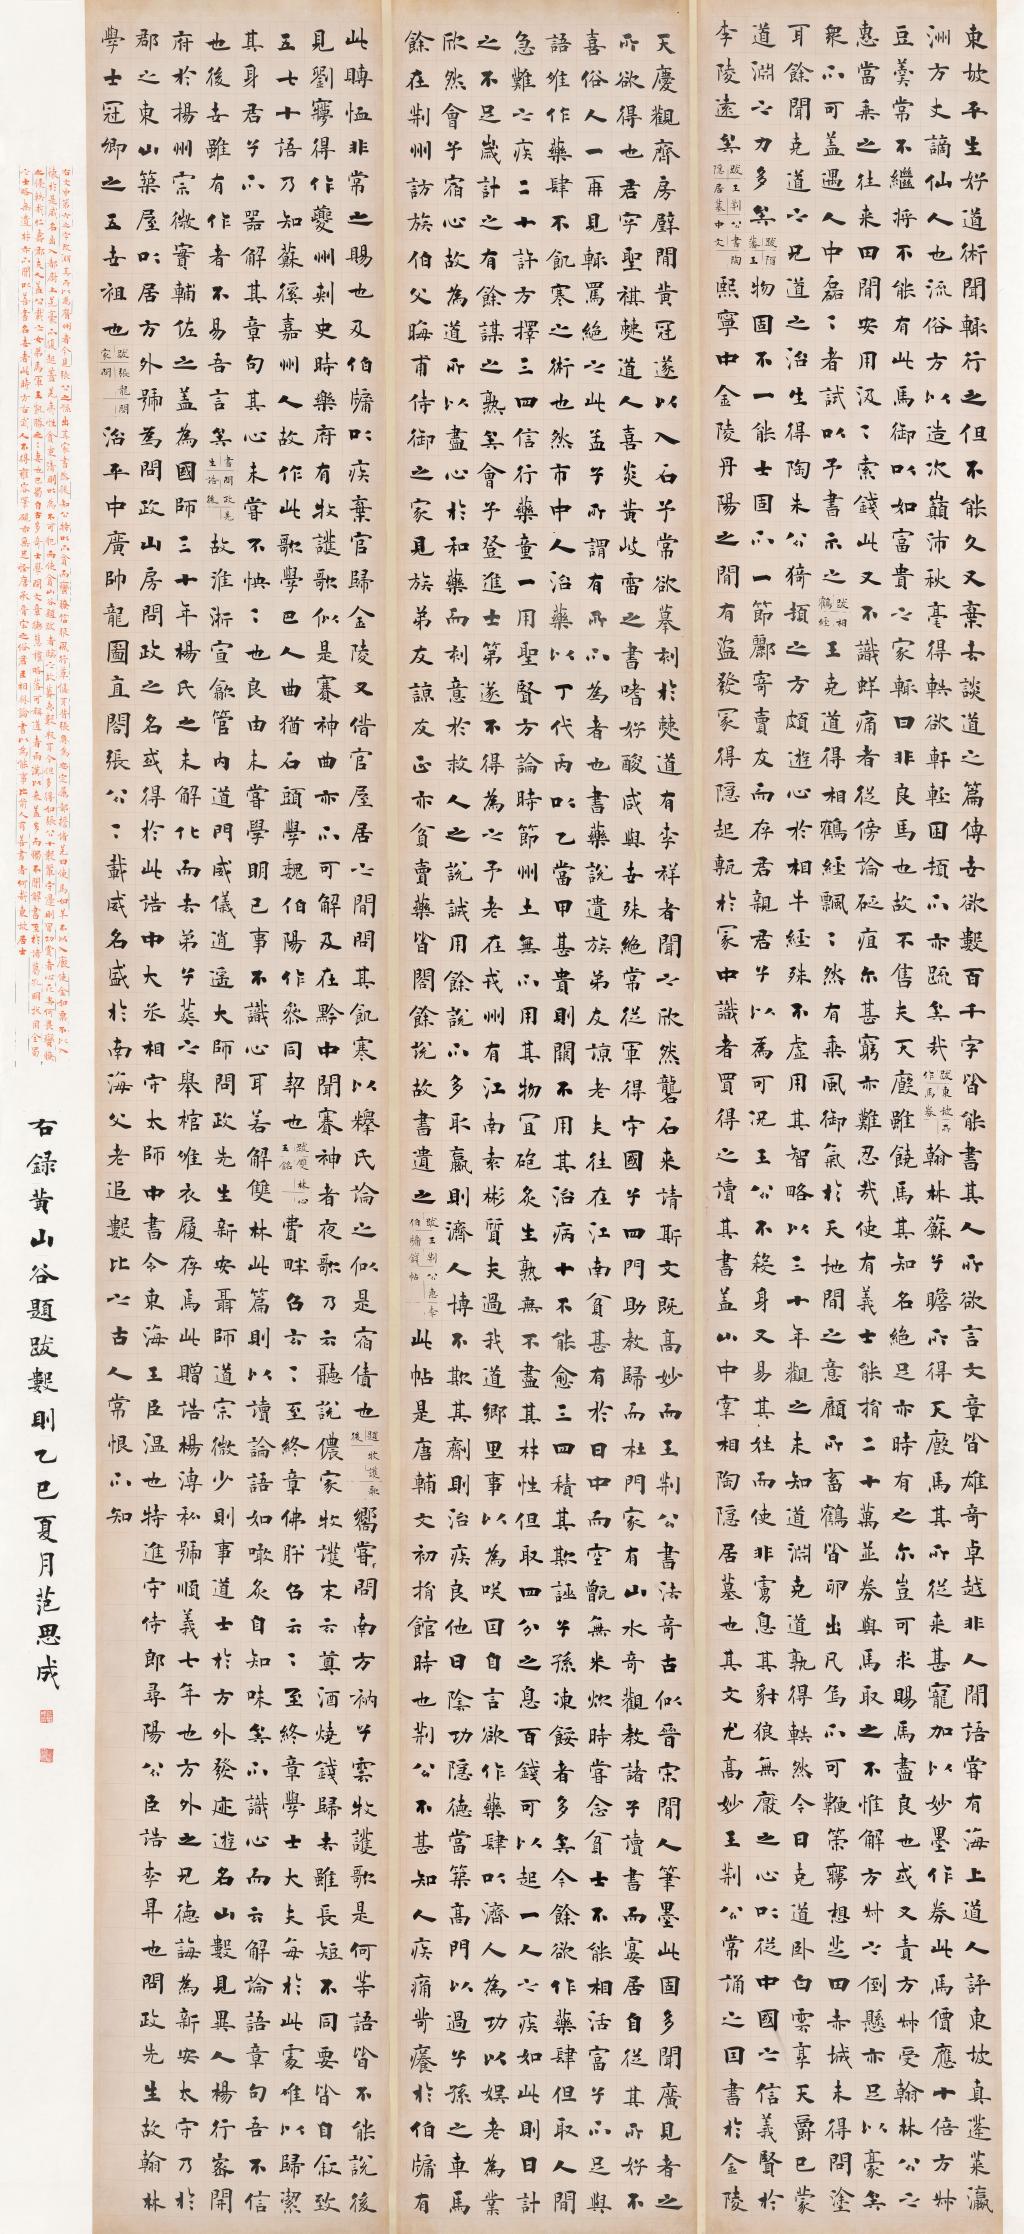 東坡平生好道術聞輒行之但不能久又棄去談道之篇傳世欲數百千字皆能書其人所欲言文章皆雄奇卓越非人間語嘗有海上道人評東坡真蓬萊瀛
洲方丈謫仙人也流俗方以造次巔沛秋毫得軼欲軒輊困頓亦疏矣哉 跋東坡所作馬券 翰林蘇子瞻所得天廄馬其所從來甚寵加以妙墨作券此馬價應十倍方艸
豆羹常不繼將不能有此馬御以如富貴之家輒曰非良馬也故不售夫天廄雖饒馬其知名絕足亦時有之尔豈可求賜馬盡良也或又責方艸受翰林公之
惠當乘之往來田間安用汲汲索錢此又不識蛘痛者從傍論砭疽尔甚窮亦難忍哉使有義士能捐二十萬並券與馬取之不惟解方艸之倒懸亦足以豪矣
眾不可蓋遇人中磊磊者試以予書示之 跋相鶴經 王克道得相鶴經飄飄然有乘風御氣於天地間之意顧所畜鶴皆卵出凡鳥不可鞭策寤想芝田赤城未得問塗
耳餘聞克道之兄道之治生得陶朱公猗頓之方頗遊心於相牛經殊不虛用其智略以三十年觀之未知道淵克道孰得軼然今日克道卧白雲享天爵已蒙
道淵之力多矣 物固不一能士固不一節酈寄賣友而存君親君子以為可況王公不殺身又易其姓而使非罪息其豺狼無厭之心以從中國之信義賢於
李陵遠矣 跋王荊公書陶隱居墓中文 熙寧中金陵丹陽之間有盜發冢得隱起甎於冢中識者買得之讀其書蓋山中宰相陶隱居墓也其文尤高妙王荊公常誦之因書於金陵
天慶觀齊房壁間黃冠遂以入石予常欲摹刻於僰道有李祥者聞之欣然礱石來請斯文既高妙而王荊公書法奇古似晉宋間人筆墨此固多聞廣見者之
所欲得也君字聖祺僰道人喜炎黃岐雷之書嗜好酸咸與世殊絕常從軍得守國子四門助教歸而杜門家有山水奇觀教諸子讀書而宴居自從其所好不
喜俗人一再見輒罵絕之此孟子所謂有所不為者也書藥說遺族弟友諒老夫往在江南貧甚有於日中而空甑無米炊時嘗念貧士不能相活富子不足與
語唯作藥肆不飢寒之術也然市中人治藥以丁代丙以乙當甲甚貴則闕不用其治病十不能愈三四積其欺誣子孫凍餒者多矣今餘欲作藥肆但取人間
急難之疾二十許方擇三四信行藥童一用聖賢方論時節州土無不用其物宜砲炙生熟無不盡其材性但取四分之息百錢可以起一人之疾如此則日計
之不足歲計之有餘謀之熟矣會予登進士第遂不得為之予老在戎州有江南素彬質夫過我道鄉里事以為咲因自言欲作藥肆以濟人為功以娛老為業
欣然會予宿心故為道所以盡心於和藥而刻意於救人之說誠用餘說不多取贏則濟人博不欺其劑則治疾良他日陰功隱德當築高門以過子孫之車馬
餘在荊州訪族伯父晦甫侍御之家見族弟友諒友正亦貧賣藥皆闇餘說故書遺之 跋王荊公惠李伯牖錢帖 此帖是唐輔文初捐館時也荊公不甚知人疾痛苛癢於伯牖有
此賻恤非常之賜也及伯牖以疾棄官歸金陵又借官屋居之間問其飢寒以釋氏論之似是宿債也 題牧護歌後 嚮嘗問南方衲子雲牧護歌是何等語皆不能說後
見劉夢得作夔州刺史時樂府有牧護歌似是賽神曲亦不可解及在黔中聞賽神者夜歌乃云聽說儂家牧護末云奠酒燒錢歸去雖長短不同要皆自敘致
五七十語乃知蘇傒嘉州人故作此歌學巴人曲猶石頭學魏伯陽作參同契也 跋雙林心王銘 費畔召云云至終章佛肸召云云至終章學士大夫每於此處唯以歸潔
其身君子不器解其章句其心未嘗不怏怏也良由未嘗學明己事不識心耳若解雙林此篇則以讀論語如噉炙自知味矣不識心而云解論語章句吾不信
也後世雖有作者不易吾言矣 書問政先生誥後 故淮浙宣歙管內道門威儀逍遙大師問政先生新安聶師道宗微少則事道士於方外發迹遊名山數見異人楊行密開
府於楊州宗微實輔佐之蓋為國師三十年楊氏之未解化而去弟子葬之舉棺唯衣履存焉此贈誥楊溥私號順義七年也方外之兄德誨為新安太守乃於
郡之東山築屋以居方外號為問政山房問政之名或得於此誥中大丞相守太師中書令東海王臣溫也特進守侍郎尋陽公臣誥李昇也問政先生故翰林
學士冠卿之五世祖也 跋張龍閣家問 治平中廣帥龍圖直閣張公公載威名盛於南海父老追數比之古人常恨不知
右錄黃山谷題跋數則乙巳夏月范思成